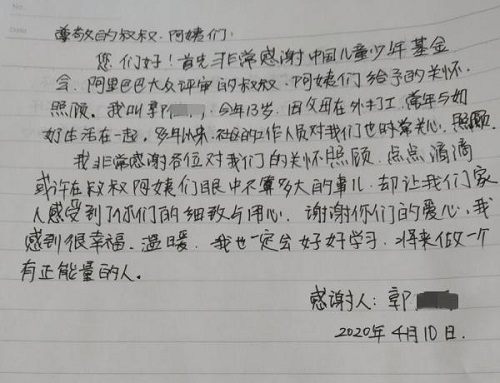 尊敬的叔叔、阿姨们:
您们好!首先非常感谢中国儿童少年基金
会、阿里巴巴大众评审的叔叔、阿姨们给予的关怀、
照顾。我叫郭,今年13岁,因父母在外打工,常年与
奶生活在一起,多年以来,社区的工作人员对我们也时常关心、照顾。
我非常感谢各位对我们的关怀照顾,点点滴滴
或许在叔叔阿姨们眼中不算多大的事儿,却让我们家
人感受到了你们的细致与用心。谢谢你们的爱心,我
感到很幸福、温暖,我也一定会好好学习,将来做一个
有正能量的人。
感谢人:郭
2020年4月10日.